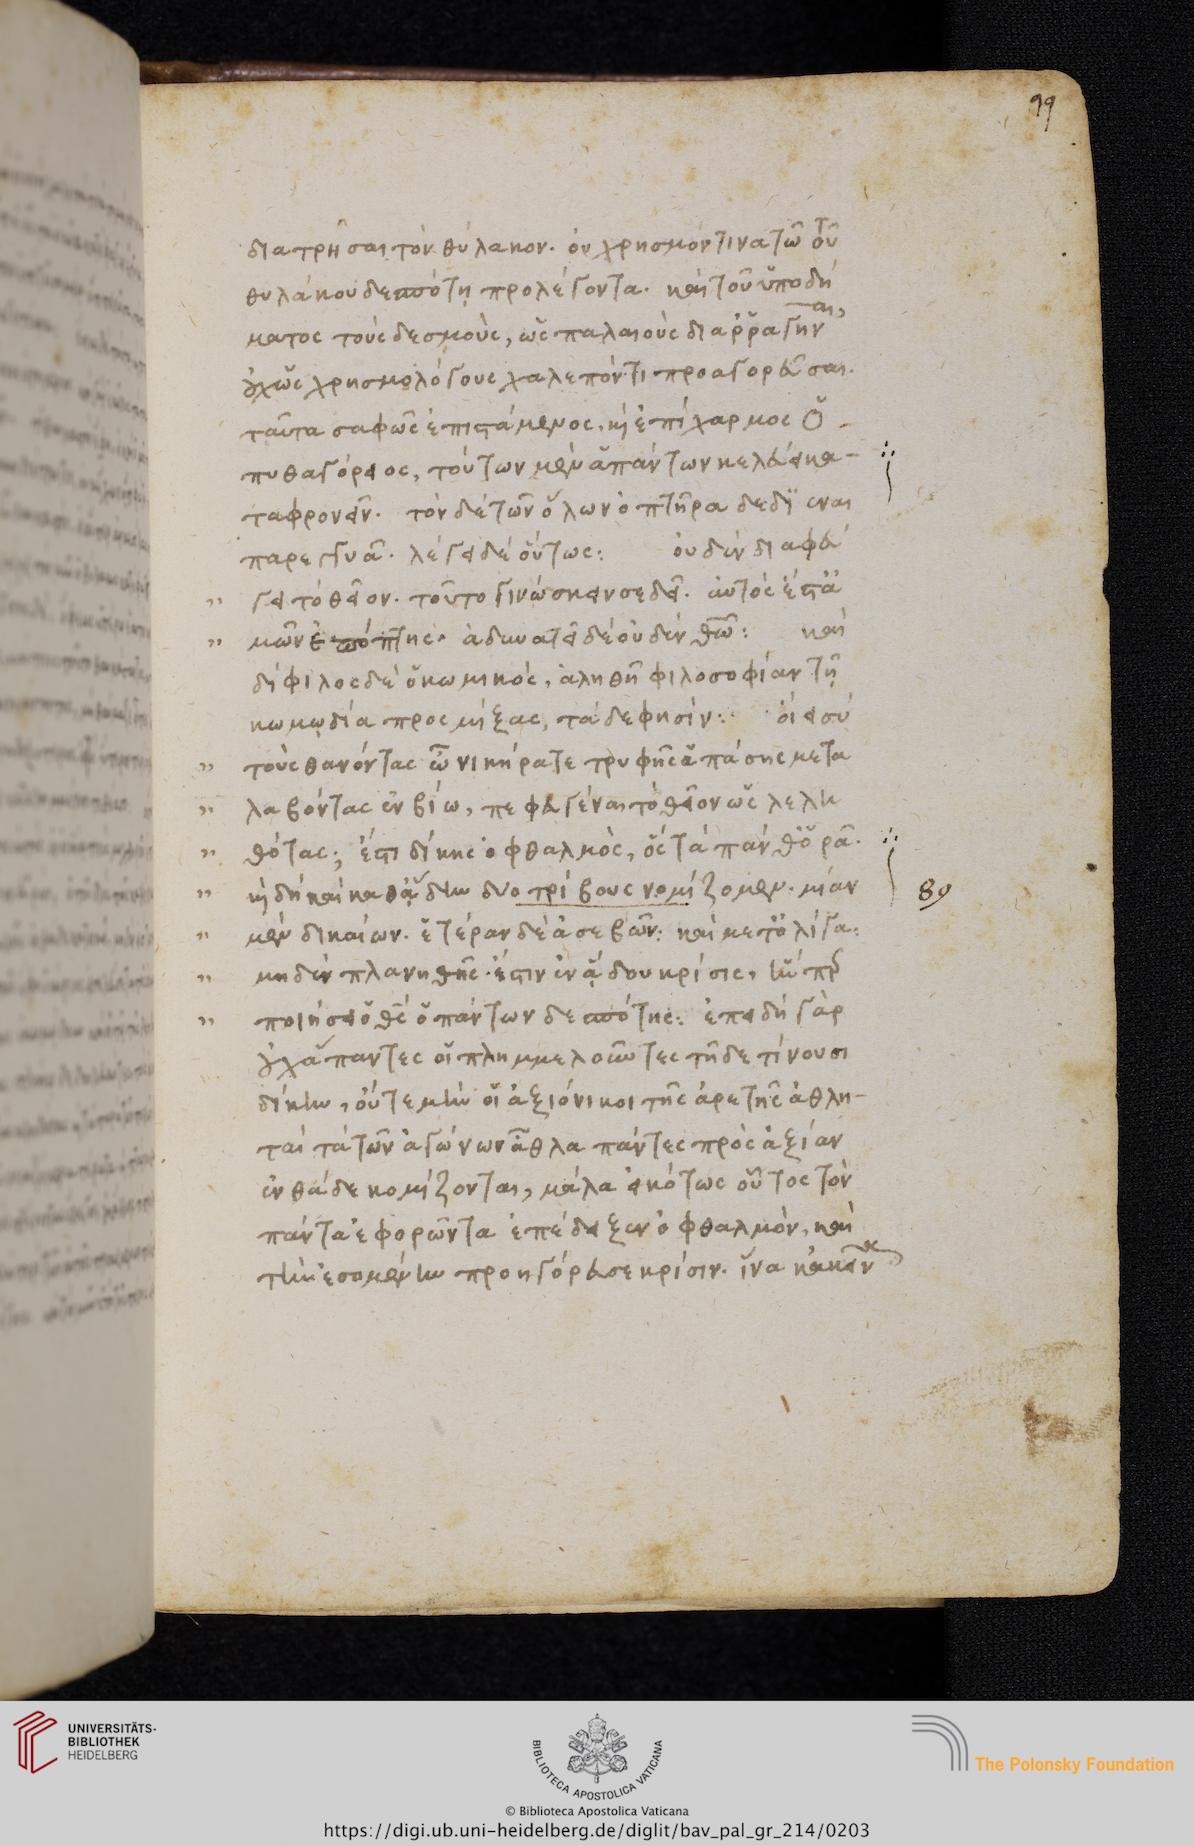 99
διατρῆσαι τὸν θύλακον. οὐ χρησμόν τινα τῶ τοῦ
θυλάκου δεσπότη προλέγοντα. καὶ τοῦ ὑποδή
ματος τοὺς δεσμοὺς, ὡς παλαιοὺς διαρραγῆναι,
οὐχ ὡς χρησμολόγους χαλεπόν τι προαγορεῦσαι.
ταῦτα σαφῶς ἐπιστάμενος, καὶ ἐπίχαρμος ὁ
πυθαγόρειος, τούτων μὲν ἁπάντων κελεύει κα-
ταφρονεῖν. τὸν δὲ τῶν ὅλων ὀπτῆρα δεδϊέναι
παρεγγυᾶ. λέγει δὲ οὕτως: οὐδὲν διαφεύ
γει τὸ θεῖον. τοῦτο γινώσκειν σε δεῖ. αὐτός ἐσθ' ἁ
μῶν ἐπόπτης. ἀδυνατεῖ δὲ οὐδὲν θεῶ: καὶ
δίφιλος δὲ ὁ κωμικὸς, ἀληθῆ φιλοσοφίαν τῇ
κωμῳδία προσμίξας, τάδε φησίν: οἴει σύ
τοὺς θανόντας ὦ νικήρατε τρυφῆς ἁπάσης μετα
λαβόντας ἐν βίω, πεφευγέναι τὸ θεῖον ὡς λελη
θότας; ἔστι δίκης ὀφθαλμὸς, ὃς τὰ πάνθ' ὁρᾶ.
καὶ δὴ καὶ καθ' ᾅδην δυο τρίβους νομίζομεν. μίαν
μὲν δικαίων. ἑτέραν δὲ ἀσεβῶν: καὶ μετ' ὀλίγα:
μηδὲν πλανηθῆς. ἔστιν ἐν ᾅδου κρίσις, ἥν περ
ποιήσει ὁ θεὸς ὁ πάντων δεσπότης: ἐπειδὴ γὰρ
οὐχ ἅπαντες οἱ πλημμελοῦντες τῆδε τίνουσι
δίκην, οὔτε μὴν οἱ ἀξιόνικοι τῆς ἀρετῆς ἀθλη-
ταὶ τὰ τῶν ἀγώνων ἆθλα πάντες πρὸς ἀξίαν
ἐνθάδε κομίζονται, μάλα εἰκότως οὗτος τὸν
πάντα ἐφορῶντα ἐπέδειξεν ὀφθαλμὸν, καὶ
τὴν ἐσομένην προηγόρευσε κρίσιν. ἵνα κἀκεῖνος
89
UNIVERSITÄTS-
BIBLIOTHEK
HEIDELBERG
BIBLIOTECA APOSTOLICA VATICANA
The Polonsky Foundation
© Biblioteca Apostolica Vaticana
https://digi.ub.uni-heidelberg.de/diglit/bav_pal_gr_214/0203